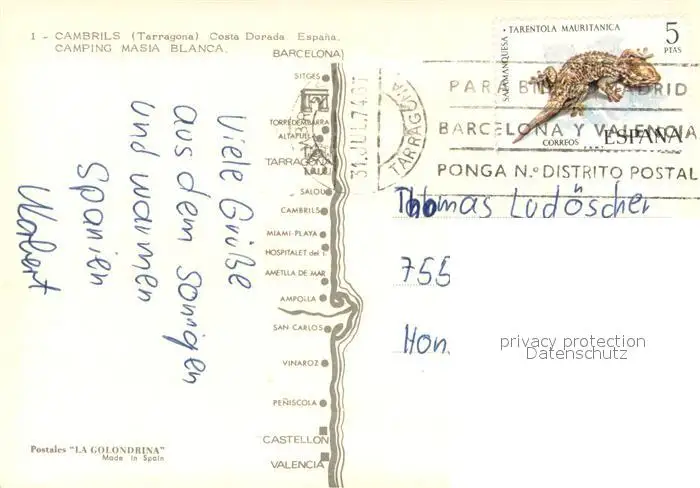 1 - CAMBRILS (Tarragona) Costa Dorada España.
CAMPING MASIA BLANCA.
BARCELONA)
SITGES
TORREDEMBARRA
ALTAFULLA
TARRAGONA
SALOU
CAMBRILS
MIAMI-PLAYA
HOSPITALET del I.
AMETLLA DE MAR
AMPOLLA
SAN CARLOS
VINAROZ
PEÑISCOLA
CASTELLON
VALENCIA
Viele Grüße
aus dem sonnigen
und warmen
Spanien
Postales "LA GOLONDRINA"
Made in Spain
SALAMANQUESA
TARENTOLA MAURITANICA
5
PTAS
CORREOS
ESPAÑA
31.JUL.74
TARRAGONA
PARA MADRID
BARCELONA Y VALENCIA
PONGA N.º DISTRITO POSTAL
Thomas Ludöscher
755
Hon.
privacy protection
Datenschutz